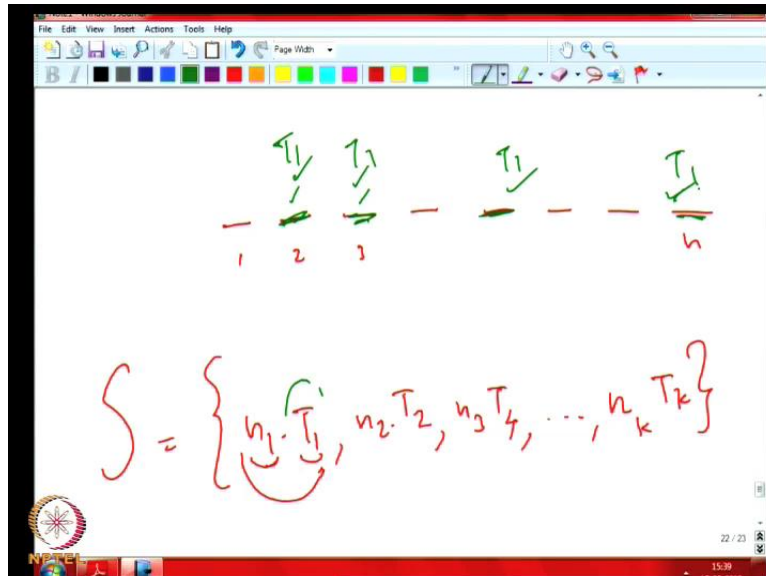 File Edit View Insert Actions Tools Help
Page Width
B I
T1 T1 T1 T1
1 2 3 n
S = { n1 . T1 , n2 . T2 , n3 T4 , ... , nk Tk }
22 / 23
NPTEL
15:39